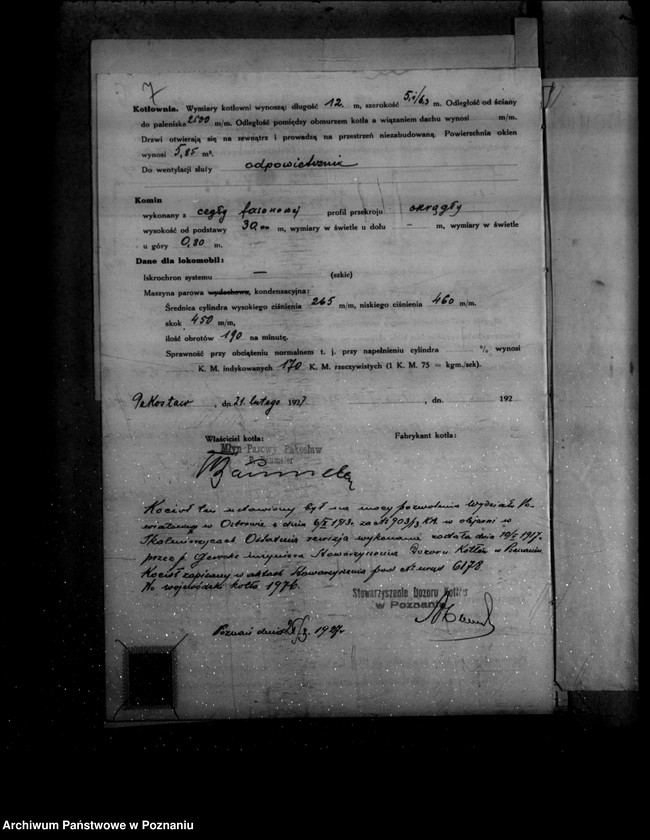 7
Kotłownia. Wymiary kotłowni wynoszą: długość 12. m, szerokość m. Odległość od ściany
do paleniska 2500 m/m. Odległość pomiędzy obmurzem kotła a wiązaniem dachu wynosi m/m.
Drzwi otwierają się na zewnątrz i prowadzą na przestrzeń niezabudowaną. Powierzchnia okien
wynosi 5,85 m².
Do wentylacji służy odpowietrznik
Komin
wykonany z cegły fasonowej profil przekroju okrągły
wysokość od podstawy 30,00 m, wymiary w świetle u dołu – m, wymiary w świetle
u góry 0,80 m.
Dane dla lokomobil:
Iskrochron systemu — (szkic)
Maszyna parowa wydechowa, kondensacyjna:
Średnica cylindra wysokiego ciśnienia 265 m/m, niskiego ciśnienia 460 m/m.
skok 450 m/m,
ilość obrotów 190 na minutę.
Sprawność przy obciążeniu normalnem t. j. przy napełnieniu cylindra % wynosi
K. M. indykowanych 170 K. M. rzeczywistych (1 K. M. 75 = kgm./sek).
Pakosław, dn. 21 lutego 1927 , dn. 192
Właściciel kotła: Fabrykant kotła:
Młyn Parowy Pakosław
Kocioł ten ustawiony był na mocy pozwolenia Wydziału Po-
wiatowego w Ostrowie z dnia 1913. za 903/3 KA. w olejarni w
Skalmierzycach Ostatnia rewizja wykonana została dnia 1917.
przez p. inżyniera Stowarzyszenia Dozoru Kotłów w Poznaniu
Kocioł zapisany w aktach Stowarzyszenia pod 6178
w województwie kotła 1976.
Stowarzyszenie Dozoru Kotłów
w Poznaniu
Poznań dnia 1927r
Archiwum Państwowe w Poznaniu